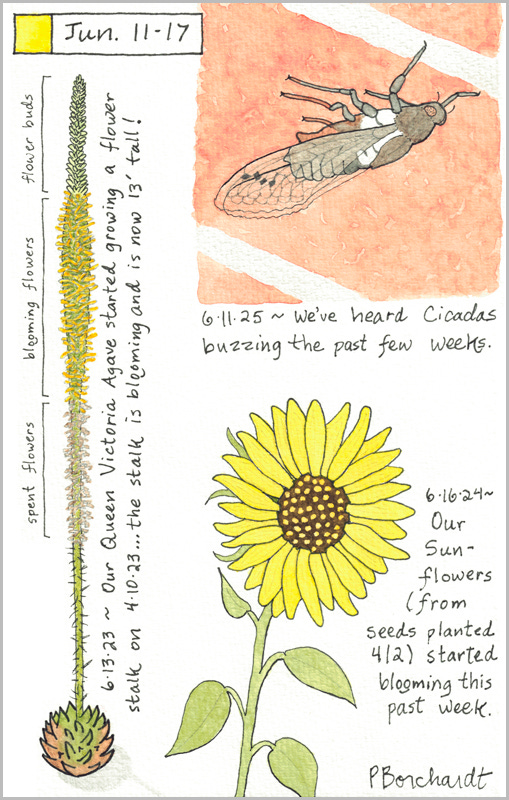 Jun. 11-17
flower buds
blooming flowers
spent flowers
6.13.23 ~ Our Queen Victoria Agave started growing a flower
stalk on 4.10.23...the stalk is blooming and is now 13' tall!
6.11.25 ~ We've heard Cicadas
buzzing the past few weeks.
6.16.24~
Our
Sun-
flowers
(from
seeds planted
4/2) started
blooming this
past week.
PBorchardt